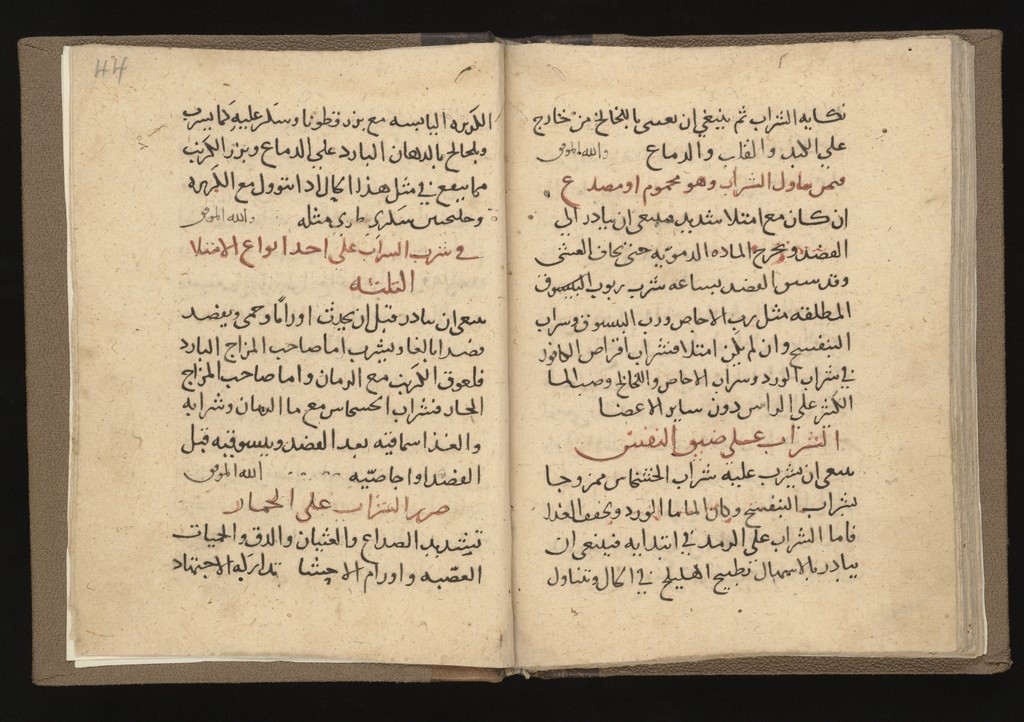 نكايه الشراب ثم ينبغي ان يعتنى باللخالخ من خارج
على الكبد والقلب والدماغ والله الموفق
فيمن تناول الشراب وهو محموم او مصدع
ان كان مع امتلا شديد فينبغي ان يبادر الى
الفصد ويخرج الماده الدمويه حتى يخاف الغشى
الفصد بساعه شرب ربوب
المطلقه مثل رب الاجاص ورب وشراب
البنفسج وان لم يكن امتلا فشراب اقراص الكافور
في شراب الورد وشراب الاجاص واللخالخ وصب الما
الكثير على الراس دون ساير الاعضا
الشراب على ضيق النفس
ينبغي ان يشرب عليه شراب الخشخاش ممزوجا
بشراب البنفسج الورد ويخفف الغذا
فاما الشراب على الرمد في ابتدايه فينبغي ان
يبادر بالاسهال بطبيخ الهليلج في الحال وتناول
44
الكزبره اليابسه مع بزر قطونا وسكر عليه كما يشرب
ويلخالخ بالادهان البارد على الدماغ وبزر الكرنب
مما ينفع في مثل هذا الحال اذا تنوول مع الكزبره
سكرى طرى مثله والله الموفق
في شرب الشراب على احد انواع الامتلا
الثلثه
ينبغي ان يبادر قبل ان يحدث اوراما وحمى ويفصد
فصدا بالغا ويشرب اما صاحب المزاج البارد
فلعوق الكرنب مع الرمان واما صاحب المزاج
الحار فشراب الخشخاش مع ما الرمان وشرابه
والغذا سماقيه بعد الفصد قبل
الفصد او اجاصيه والله الموفق
ضرر الشراب على الخمار
تشديد الصداع والغثيان والدق والحميات
العصبه واورام الاحشا تداركه الاجتهاد